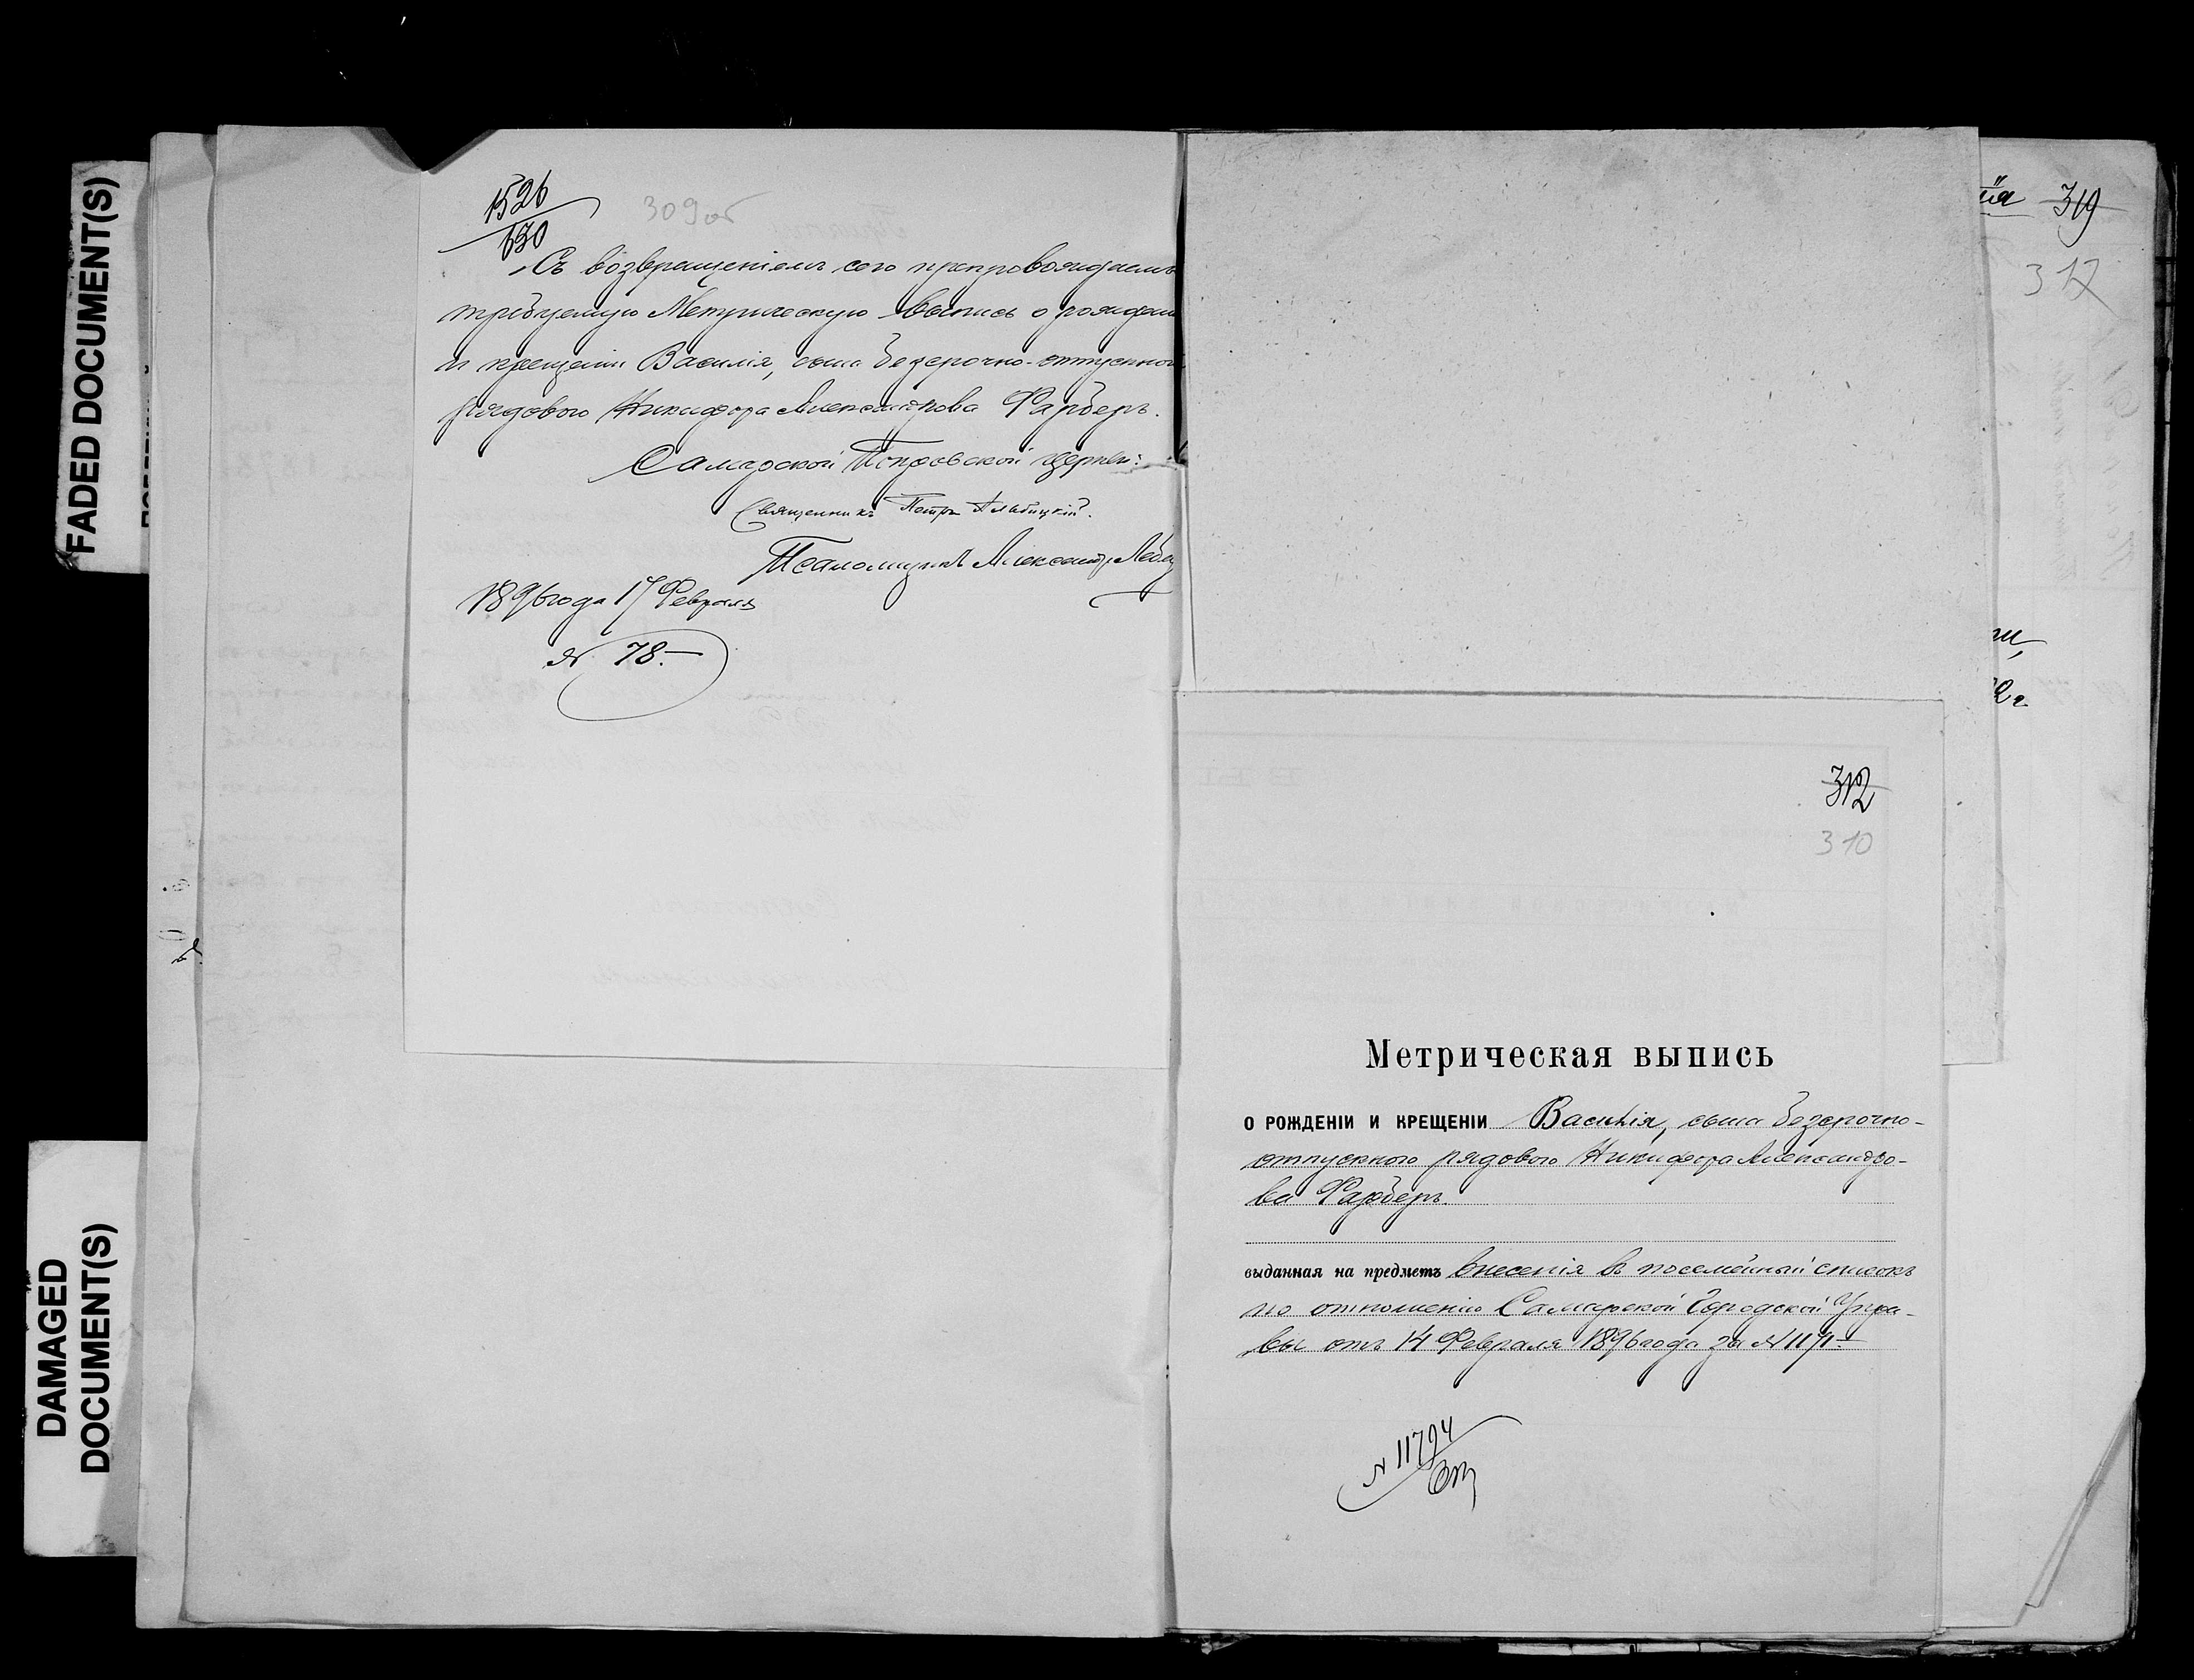 FADED DOCUMENT(S)
DAMAGED
DOCUMENT(S)
1526
630
309 об
Съ возвращеніемъ сего препровождаемъ
требуемую Метрическую выпись о рожден
и крещеніи Василія, сына безсрочно-отпускной
рядового Никифора Александрова Фарберъ.
Самарской Покровской церкви:
Священникъ Петръ
Псаломщикъ Александр Лебед
1896 года 17 Февраля
№ 78.
312
310
Метрическая выпись
О РОЖДЕНІИ И КРЕЩЕНІИ Василія, сына безсрочно-
отпускного рядового Никифора Александро-
ва Фарберъ.
выданная на предметъ внесенія въ посемейный списокъ
по отношенію Самарской Городской Упра-
вы отъ 14 Февраля 1896 года за № 1171.
№ 11794
ія 319
312
ти,
2 г